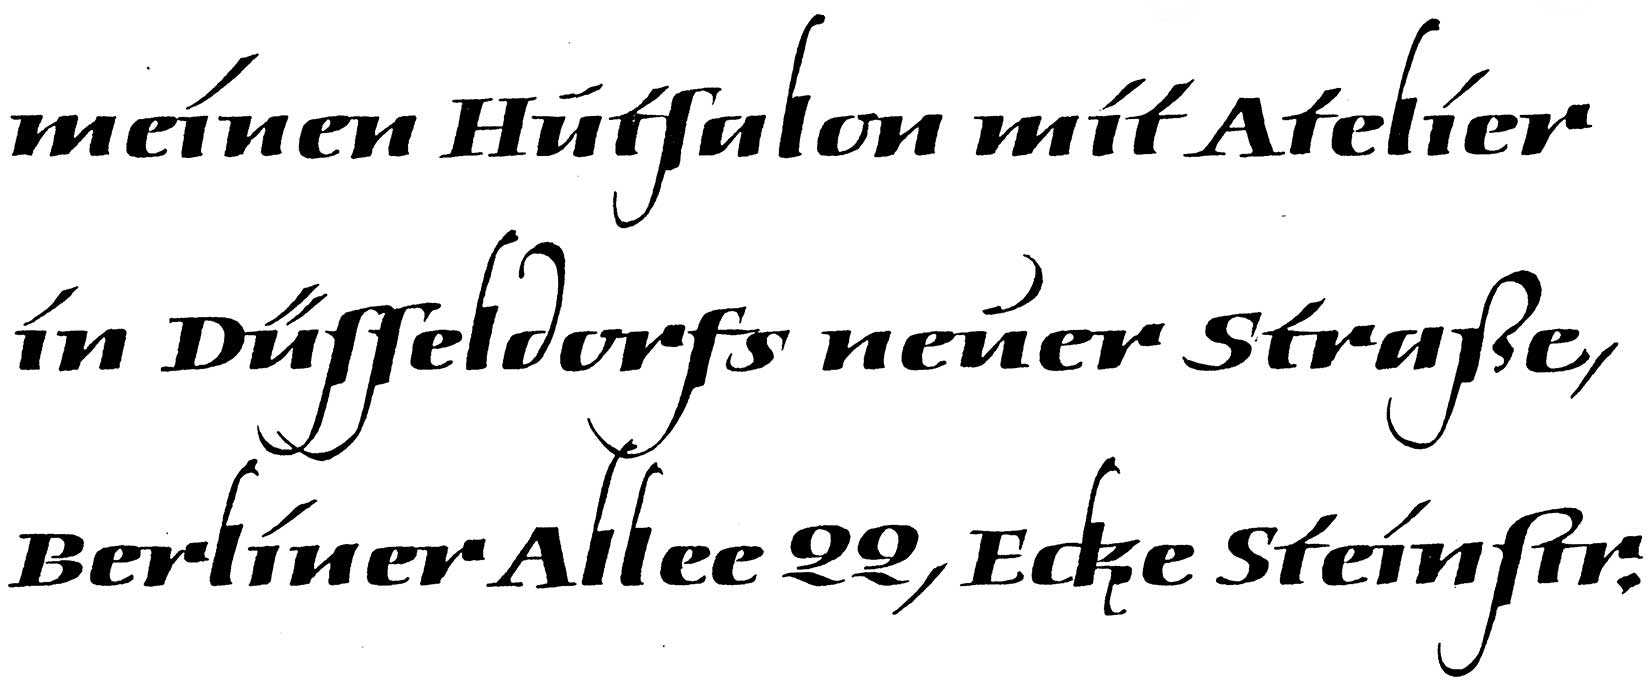 meinen Hutſalon mit Atelier
in Düſſeldorfs neuer Straße,
Berliner Allee 22, Ecke Steinſtr.